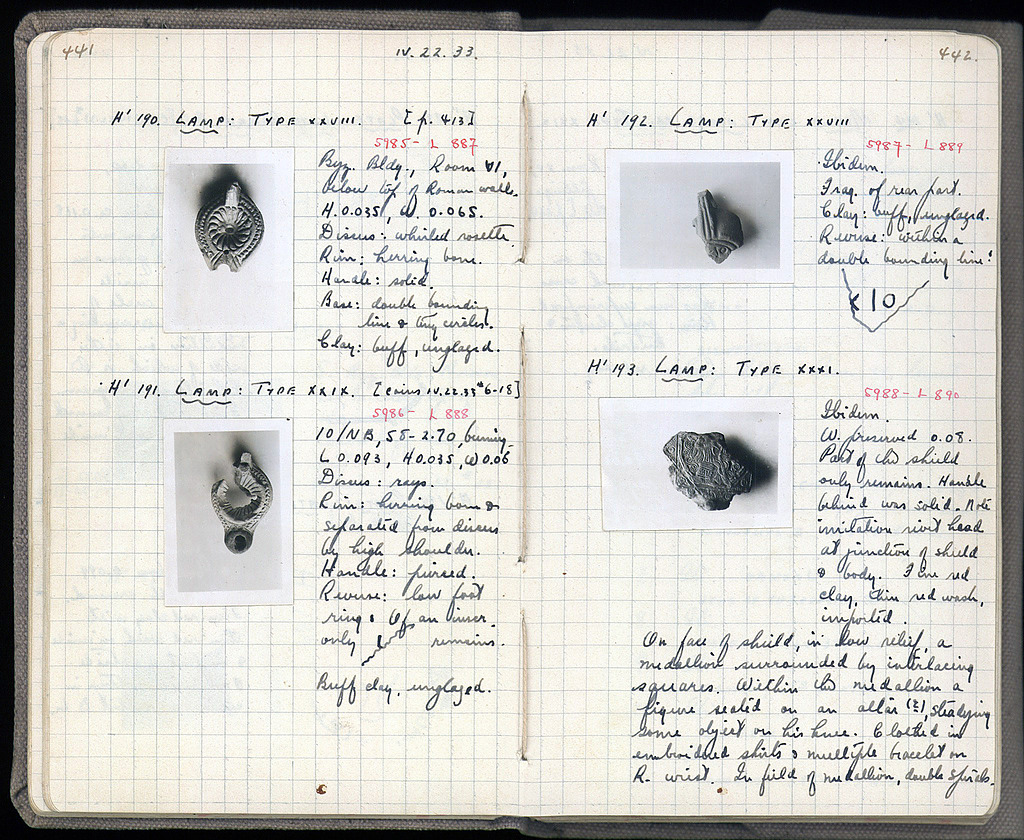 441
IV. 22. 33.
H' 190. LAMP: TYPE XXVIII. [p. 413]
5985 - L 887
Byz. Bldg., Room VI,
below top of Roman walls.
H. 0.035, W. 0.065.
Discus: whirled rosette.
Rim: herring bone.
Handle: solid.
Base: double bounding
line & tiny circles.
Clay: buff, unglazed.
H' 191. LAMP: TYPE XXIX. [coins IV.22.33 #6-18]
5986 - L 888
10/NB, 55-2.70, burning.
L 0.093, H 0.035, W 0.06
Discus: rays.
Rim: herring bone &
separated from discus
by high shoulder.
Handle: pierced.
Reverse: low foot
ring: Of an inscr.
only remains.
Buff clay, unglazed.
442.
H' 192. LAMP: TYPE XXVIII
5987 - L 889
Ibidem.
Frag. of rear part.
Clay: buff, unglazed.
Reverse: within a
double bounding line:
x10
H' 193. LAMP: TYPE XXXI.
5988 - L 890
Ibidem.
W. preserved 0.08.
Part of the shield
only remains. Handle
behind was solid. Note
imitation rivet head
at junction of shield
& body. Fine red
clay, thin red wash,
imported.
On face of shield, in low relief, a
medallion surrounded by interlacing
squares. Within the medallion a
figure seated on an altar (?), steadying
some object on his knee. Clothed in
embroidered skirts & multiple bracelet on
R. wrist. In field of medallion, double spirals.